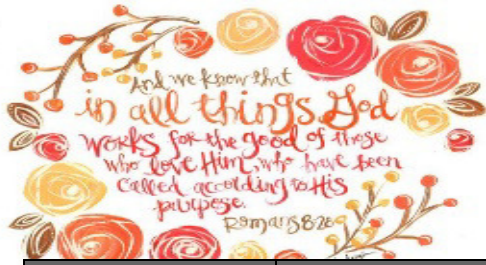 And we know that
in all things God
works for the good of those
who love Him, who have been
called according to His
purpose.
Romans 8:28